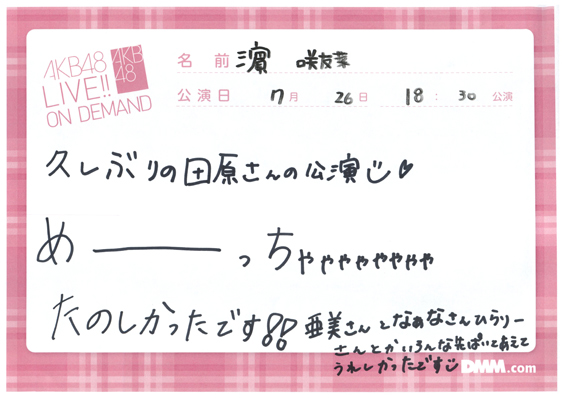 AKB48
LIVE!!
ON DEMAND
AKB
48
名前 濵 咲友菜
公演日 7月 26日 18:30 公演
久しぶりの田原さんの公演
めーっちゃゃゃゃゃゃゃゃ
たのしかったです!! 亜美さんとなぁなさんひらりー
さんとかいろんな先ぱいとあえて
うれしかったです
DMM.com